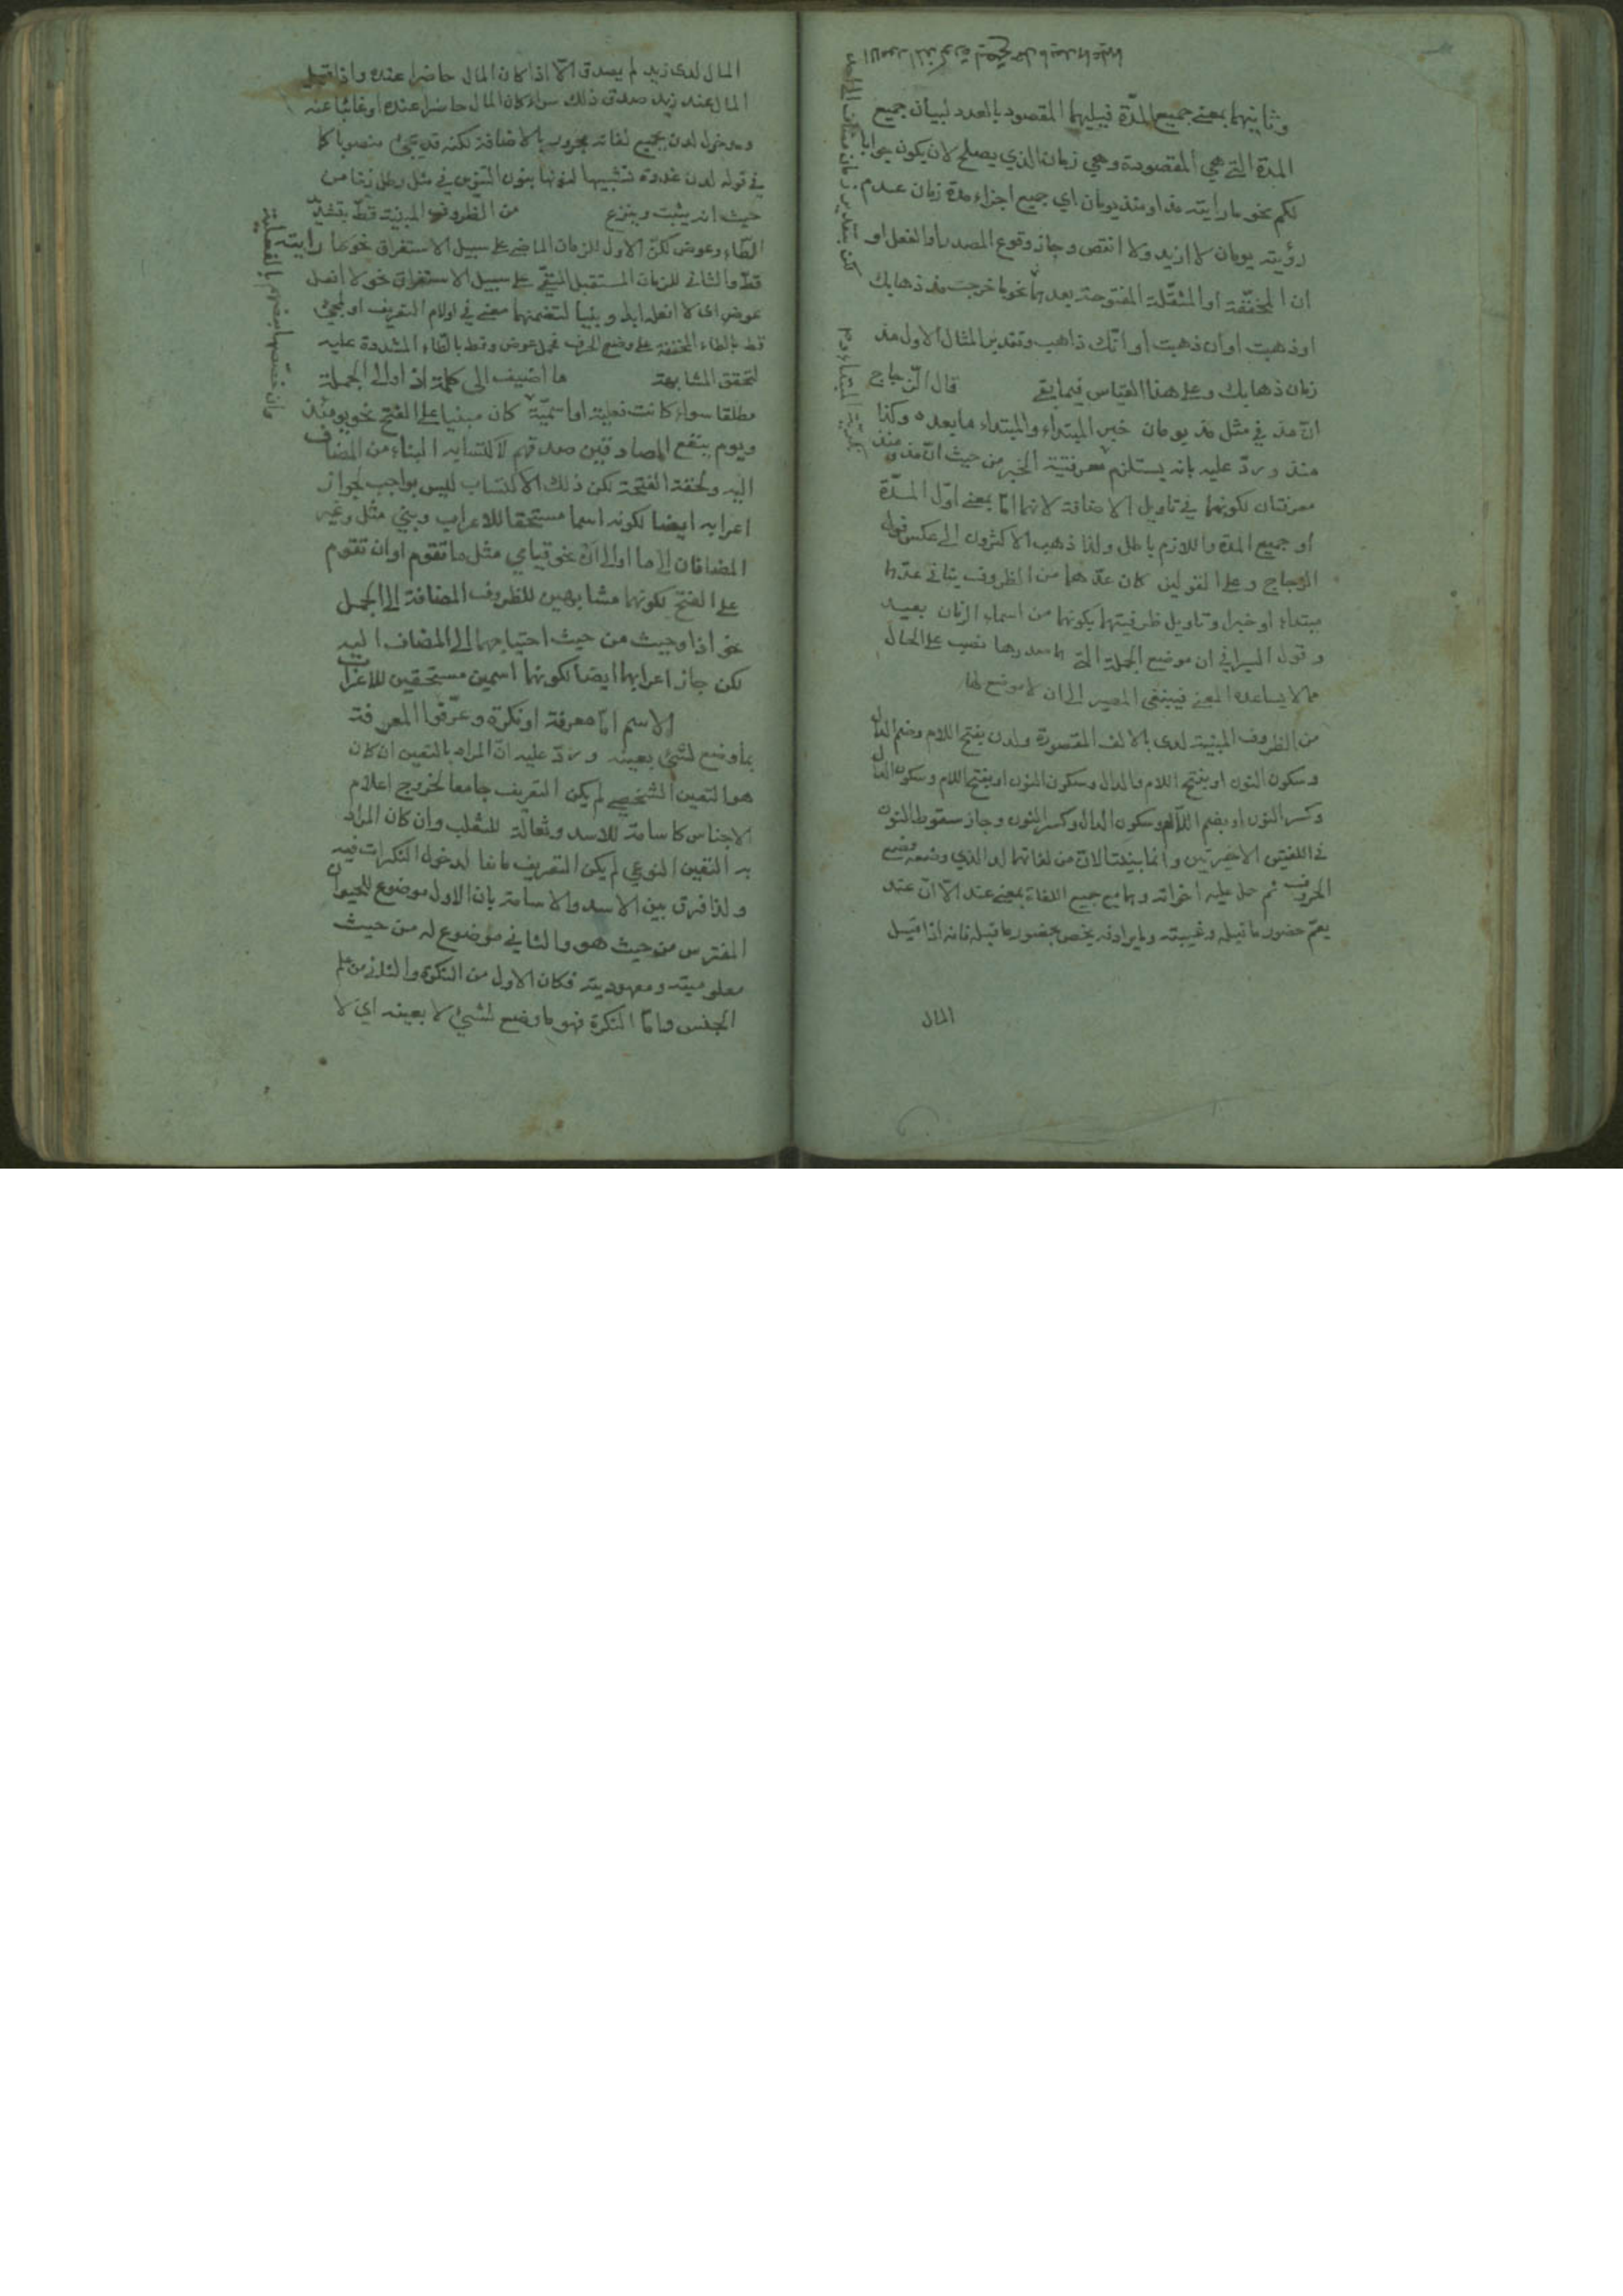 وثانيهما بمعنى جميع المدّة فيليهما المقصود بالعدد لبيان جميع
المدة التي هي المقصودة وهي زمان الذي يصلح لان يكون جوابا
لكم نحو ما رايته مذ او منذ يومان اي جميع اجزاء مدة زمان عدم
رؤيته يومان لا ازيد ولا انقص وجاز وقوع المصدر او الفعل او
ان المخفّفة او المثقّلة المفتوحة بعدهما نحو ما خرجت مذ ذهابك
او ذهبت او ان ذهبت او انّك ذاهب وتقدير المثال الاول مذ
زمان ذهابك وعلى هذا القياس فيما بقي قال الزجاج
انّ مذ في مثل مذ يومان خبر المبتداء والمبتداء ما بعده وكذا
منذ وردّ عليه بانه يستلزم معرفتية الخبر من حيث انّ مذ ومنذ
معرفتان لكونهما في تاويل الاضافة لانهما امّا بمعنى اوّل المدّة
او جميع المدة واللازم باطل ولذا ذهب الاكثرون الى عكس قول
الزجاج وعلى القولين كان عدّهما من الظروف ينافي عدّها
مبتداء او خبرا وتاويل ظرفيتهما بكونهما من اسماء الزمان بعيد
وقول السيرافي ان موضع الجملة التي هما صدرها نصب على الحال
مما لا يساعده المعنى فينبغي المصير الى ان لا موضع لها
من الظروف المبنية لدى بالالف المقصورة ولدن بفتح اللام وضم الدال
وسكون النون او بفتح اللام والدال وسكون النون او بفتح اللام وسكون الدال
وكسر النون او بضم اللام وسكون الدال وكسر النون وجاز سقوط النون
في اللغتين الاخيرتين وانما بنيتا لانّ من لغاتهما لد الذي وضعه وضع
الحروف ثم حمل عليه اخواته وهما مع جميع اللغات بمعنى عند الّا انّ عند
يعمّ حضور ما قبله وغيبته وما يرادفه يخص بحضور ما قبله فانه اذا قيل
المال
المال لدى زيد لم يصدق الّا اذا كان المال حاضرا عنده واذا قيل
المال عند زيد صدق ذلك سواء كان المال حاضرا عنده او غائبا عنه
ومدخول لدن بجميع لغاته مجرور بالاضافة لكنه قد يجئ منصوبا كما
في قوله لدن غدوة تشبيها لنونها بنون التنوين في مثل رطل زيتا من
حيث انه يثبت وينزع من الظروف المبنية قطّ بتشدّ
الطاء وعوض لكنّ الاول للزمان الماضي على سبيل الاستغراق نحو ما رايته
قطّ والثاني للزمان المستقبل المنفي على سبيل الاستغراق نحو لا افعل
عوض اى لا افعله ابدا وبنيا لتضمنهما معنى في او لام التعريف او لمجئ
قط بالطاء المخففة على وضع الحرف فحمل عوض وقط بالطاء المشددة عليه
لتحقق المشابهة ما اضيف الى كلمة اذ او الى الجملة
مطلقا سواء كانت فعلية او اسميّة كان مبنيا على الفتح نحو يومئذ
ويوم ينفع الصادقين صدقهم لاكتسابه البناء من المضاف
اليه ولخفة الفتحة لكن ذلك الاكتساب ليس بواجب لجواز
اعرابه ايضا لكونه اسما مستحقا للاعراب وبني مثل وغير
المضافان الى ما او الى انّ نحو قيامي مثل ما تقوم او ان تقوم
على الفتح لكونهما مشابهين للظروف المضافة الى الجمل
نحو اذا وحيث من حيث احتياجهما الى المضاف اليه
لكن جاز اعرابهما ايضا لكونهما اسمين مستحقين للاعراب
الاسم امّا معرفة او نكرة وعرّفوا المعرفة
بما وضع لشئ بعينه وردّ عليه انّ المراد بالتعين ان كان
هو التعين الشخصي لم يكن التعريف جامعا لخروج اعلام
الاجناس كاسامة للاسد وثعالة للثعلب وان كان المراد
به التعين النوعي لم يكن التعريف مانعا لدخول النكرات فيه
ولذا فرق بين الاسد والاسامة بان الاول موضوع للحيوان
المفترس من حيث هو والثاني موضوع له من حيث
معلوميته ومعهوديته فكان الاول من النكرة والثاني من علم
الجنس وامّا النكرة فهو ما وضع لشئ لا بعينه اي لا